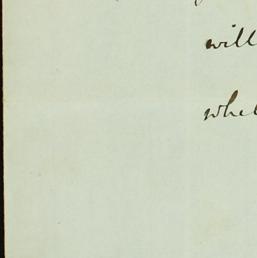 will
whe